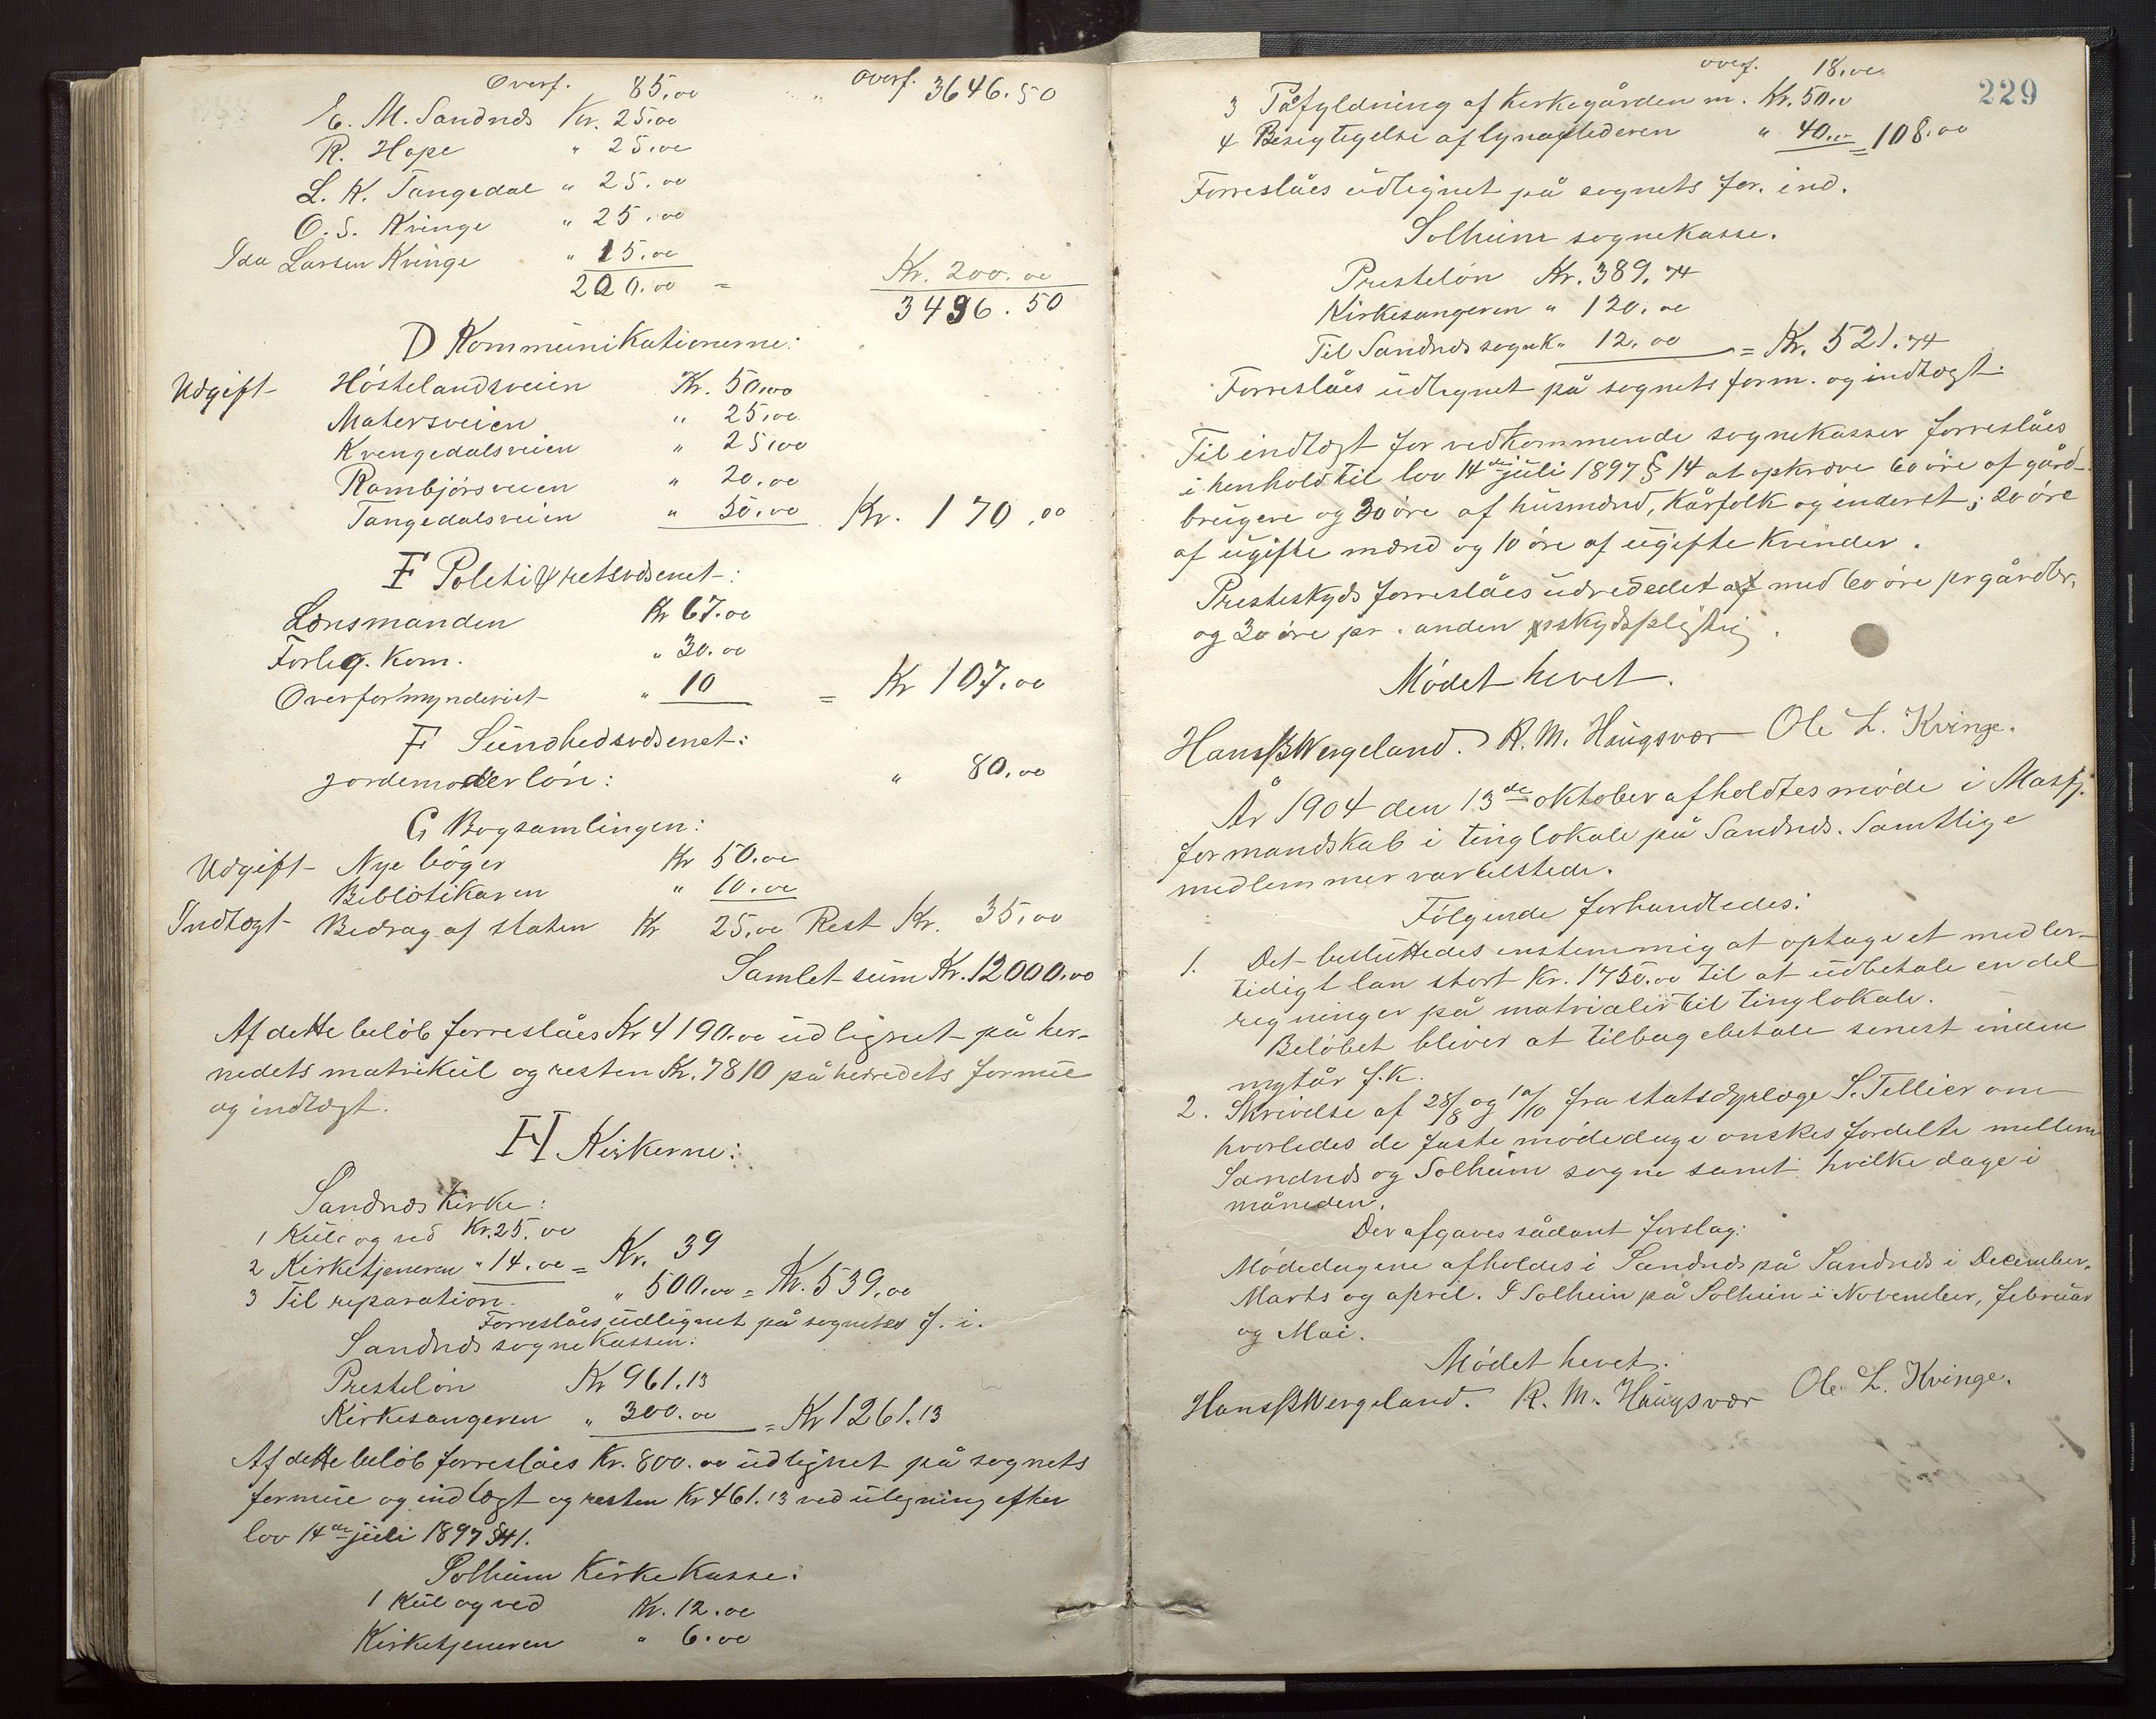 Overf. 85.00 " Overf. 3646.50
E. M. Sandnæs Kr. 25.00
R. Hope " 25.00
L. K. Tangedal " 25.00
O. S. Kvinge " 25.00
Ida Larsen Kvinge " 15.00
200.00 = Kr. 200.00
3496.50
D Kommunikationerne:
Udgift Høstelandsveien Kr. 50.00
Matersveien " 25.00
Krengedalsveien " 25.00
Rambjørsveien " 20.00
Tangedalsveien " 50.00 Kr. 170.00
F Politi & retsvæsenet:
Lensmanden Kr 67.00
Forlig. Kom. " 30.00
Overformynderiet " 10 = Kr 107.00
F Sundhedsvæsenet:
jordemoderløn: " 80.00
G Bogsamlingen:
Udgift Nye bøger Kr 50.00
Bibliotikaren " 10.00
Indtægt Bedrag af staten Kr 25.00 Rest Kr. 35.00
Samlet sum Kr. 12000.00
Af dette beløb forreslåes Kr 4190.00 udlignet på her-
redets matrikul og resten Kr. 7810 på herredets formue
og indtægt.
H Kirkerne:
Sandnæs Kirke:
1 Kul og ved Kr. 25.00
2 Kirketjeneren " 14.00 = Kr. 39
3 Til reparation. " 500.00 = Kr. 539.00
Forreslåes udlignet på sognets f. i.
Sandnæs sognekassen:
Presteløn Kr 961.13
Kirkesangeren " 300.00 = Kr 1261.13
Af dette beløb forreslåes Kr. 800.00 udlignet på sognets
formue og indtægt og resten Kr 461.13 ved uligning efter
lov 14de juli 1897 § 41.
Solheim Kirke Kasse:
1 Kul og ved Kr. 12.00
Kirketjeneren " 6.00
229
overf. 18.00
3 Påfyldning af Kirkegården m. Kr. 50.00
4 Besigtigelse af lynaflederen " 40.00 = 108.00
Forreslåes udlignet på sognets for. ind.
Solheim sognekasse.
Presteløn Kr. 389.74
Kirkesangeren " 120.00
Til Sandnæs sognk. " 12.00 = Kr. 521.74
Forreslåes udlignet på sognets form. og indtægt.
Til indtægt for vedkommende sognekasser forreslåes
i henhold til lov 14de juli 1897 § 14 at opkræve 60 øre af gård-
brugere og 30 øre af husmænd, Kårfolk og inderst; 20 øre
af ugifte mænd og 10 øre af ugifte Kvinder.
Presteskyds forreslåes udrededet af med 60 øre pr gårdbr.
og 30 øre pr. anden skydspligtig.
Mødet hevet.
Hans B Wergeland. R. M. Haugsvær Ole L. Kvinge.
År 1904 den 13de oktober afholdtes møde i Masfj.
formandskab i tinglokale på Sandnæs. Samtlige
medlemmer var tilstede.
Følgende forhandledes:
1. Det besluttedes enstemmig at optage et midler-
tidigt lån stort Kr. 1750.00 til at udbetale en del
regninger på matrialir til tinglokale.
Beløbet bliver at tilbagebetale senest inden
nytår f. k.
2. Skrivelse af 28/8 og 10/10 fra statsdyrlæge S. Tellier om
hvorledes de faste mødedage ønskes fordelte mellem
Sandnæs og Solheim sogne samt hvilke dage i
måneden.
Der afgaves sådant forslag:
Mødedagene afholdes i Sandnæs på Sandnæs i December,
Marts og april. I Solheim på Solheim i November, februar
og Mai.
Mødet hevet.
Hans B Wergeland. R. M. Haugsvær Ole L. Kvinge.